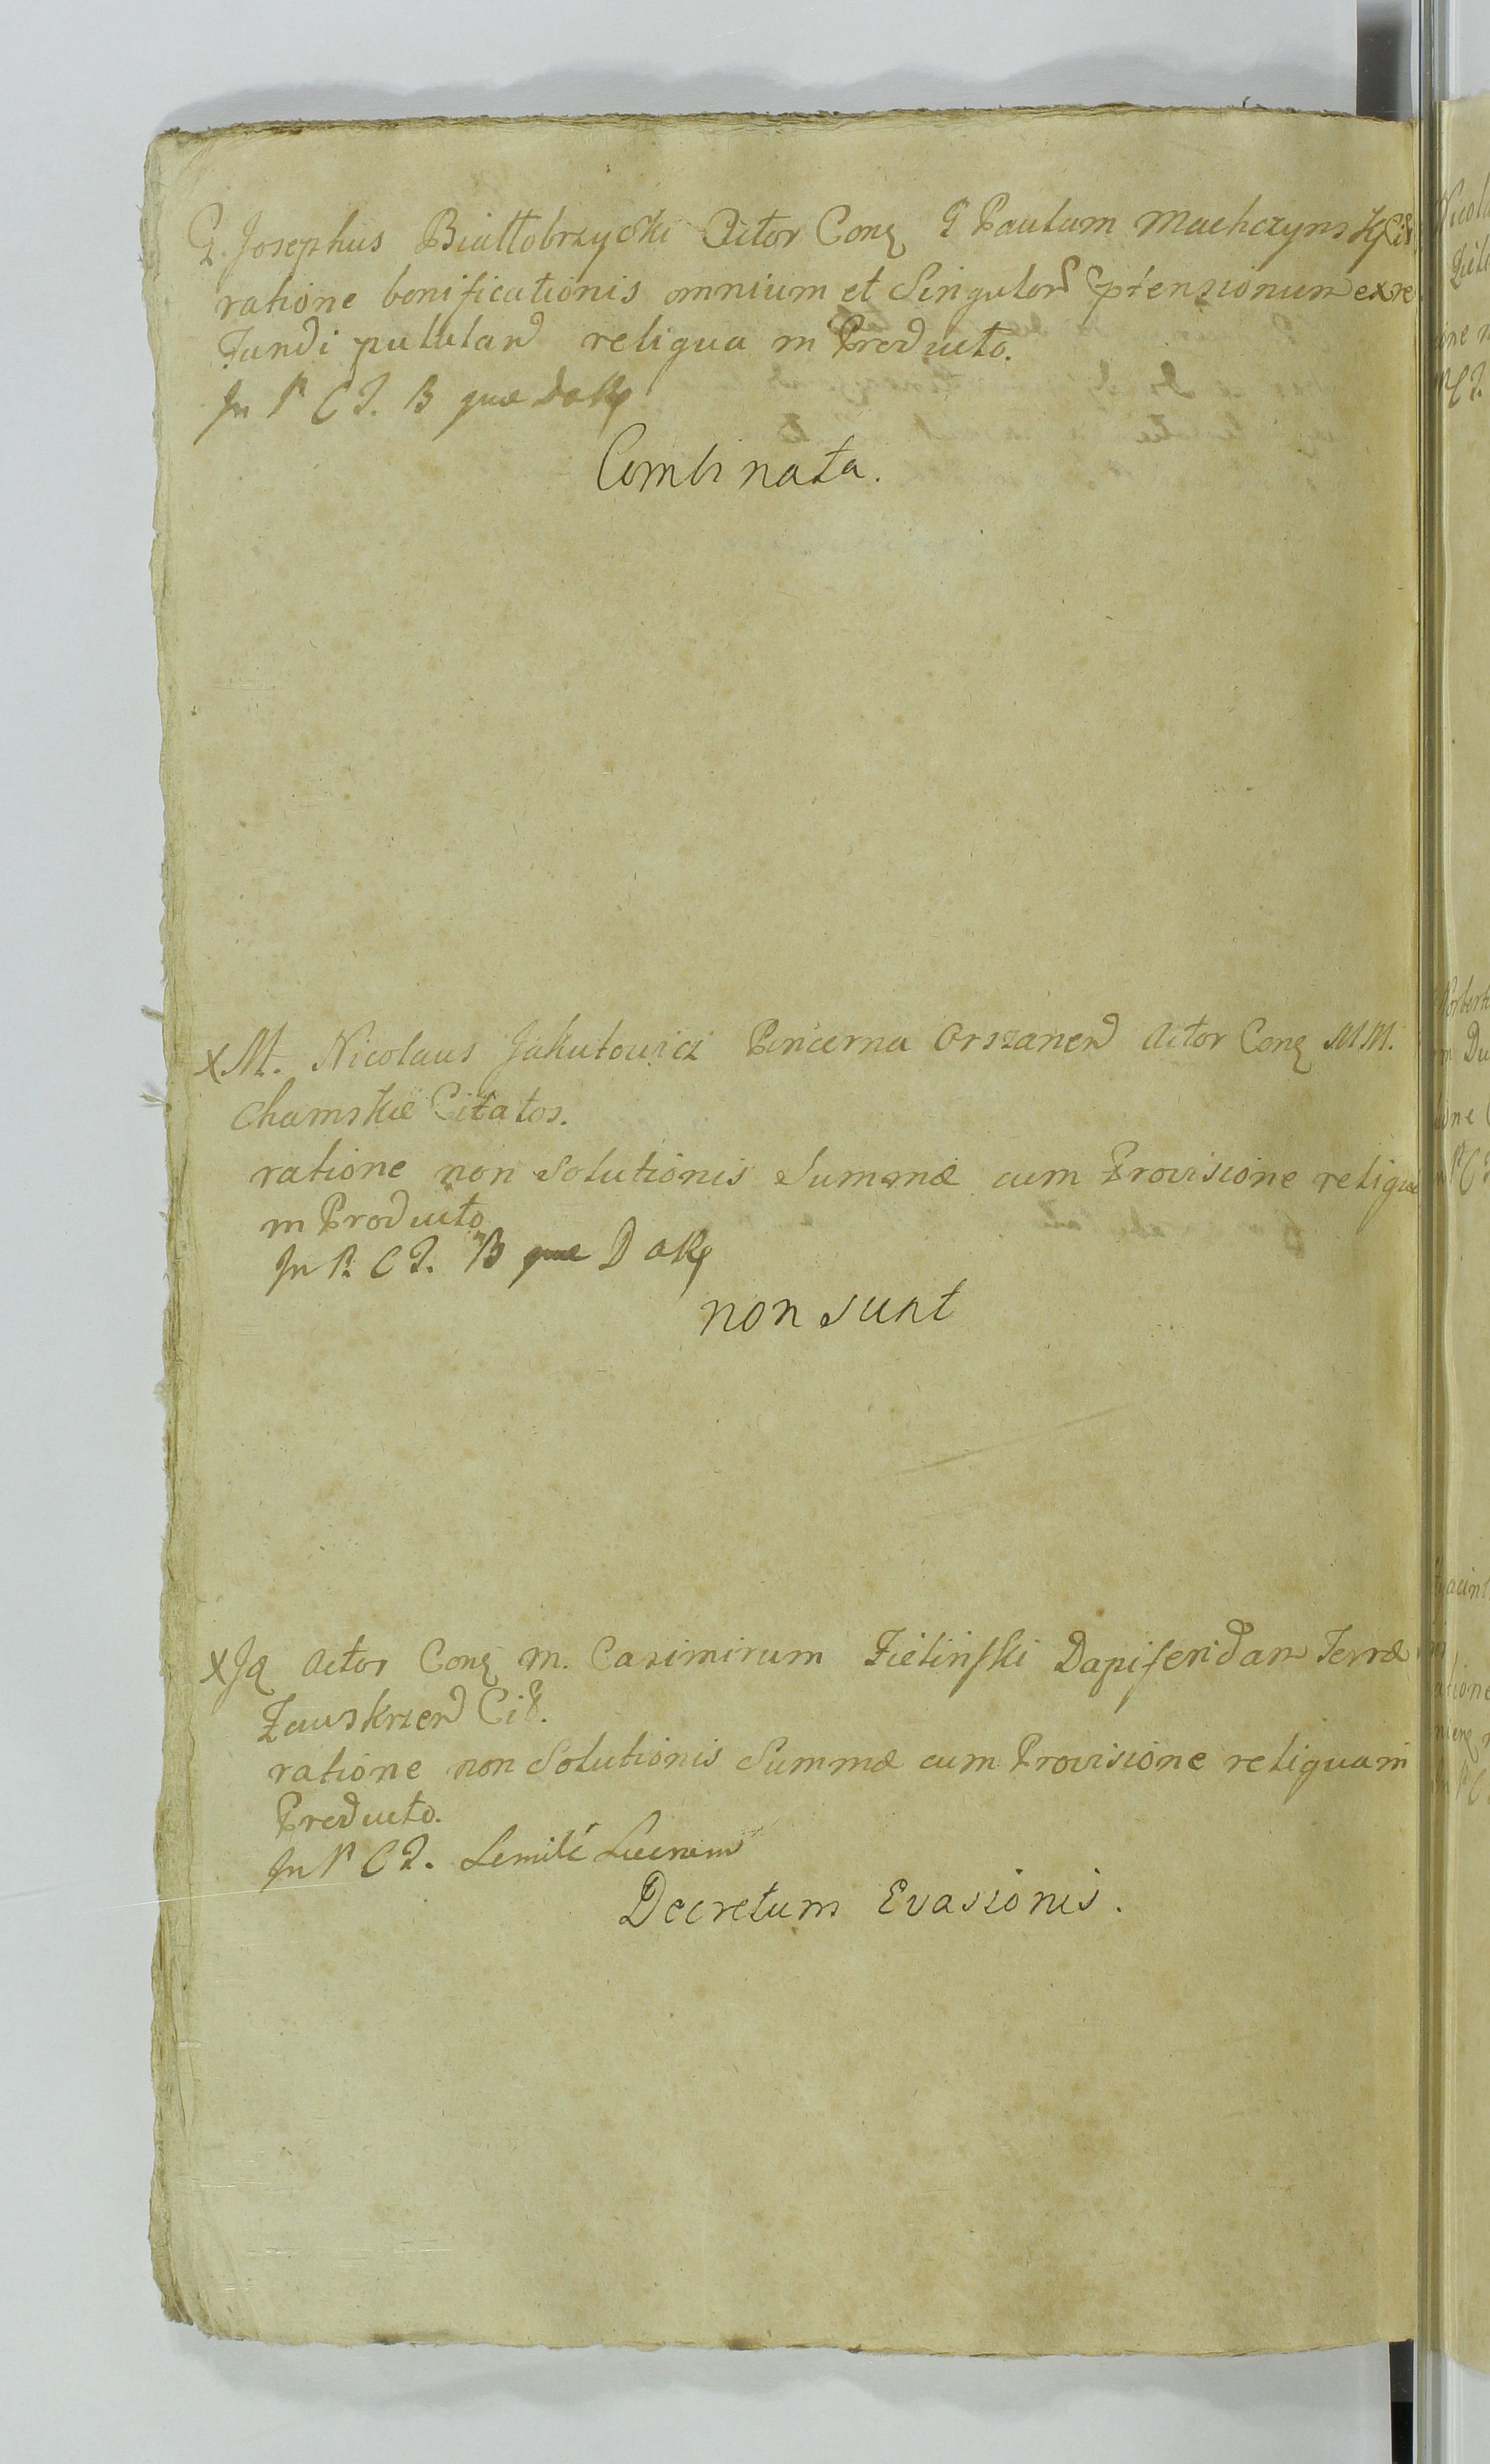 G. Josephus Białłobrzycki Actor Conq G Paulum Machczynski Cit
ratione bonificationis omnium et Singulor prtensionum ex re
Fundi pululand reliqua in Producto.
In P C T. B quæ
Combinata.
x M. Nicolaus Jakutowicz Pincerna Orszanen Actor Conq MM.
Chamskie Citatos.
ratione non Solutionis Summæ cum Provisione reliqua
in Producto
In P. C T. B quæ
non sunt
x Iq Actor Conq M. Casimirum Zielinski Dapiferidam Terræ
Zauskrzen Cit.
ratione non Solutionis Summæ cum Provisione reliqua in
Producto.
In P C T. Lucrum
Decretum Evasionis.